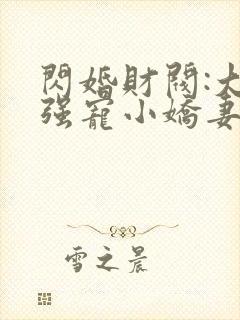 閃婚財閥:大
强寵小嬌妻
雪之晨